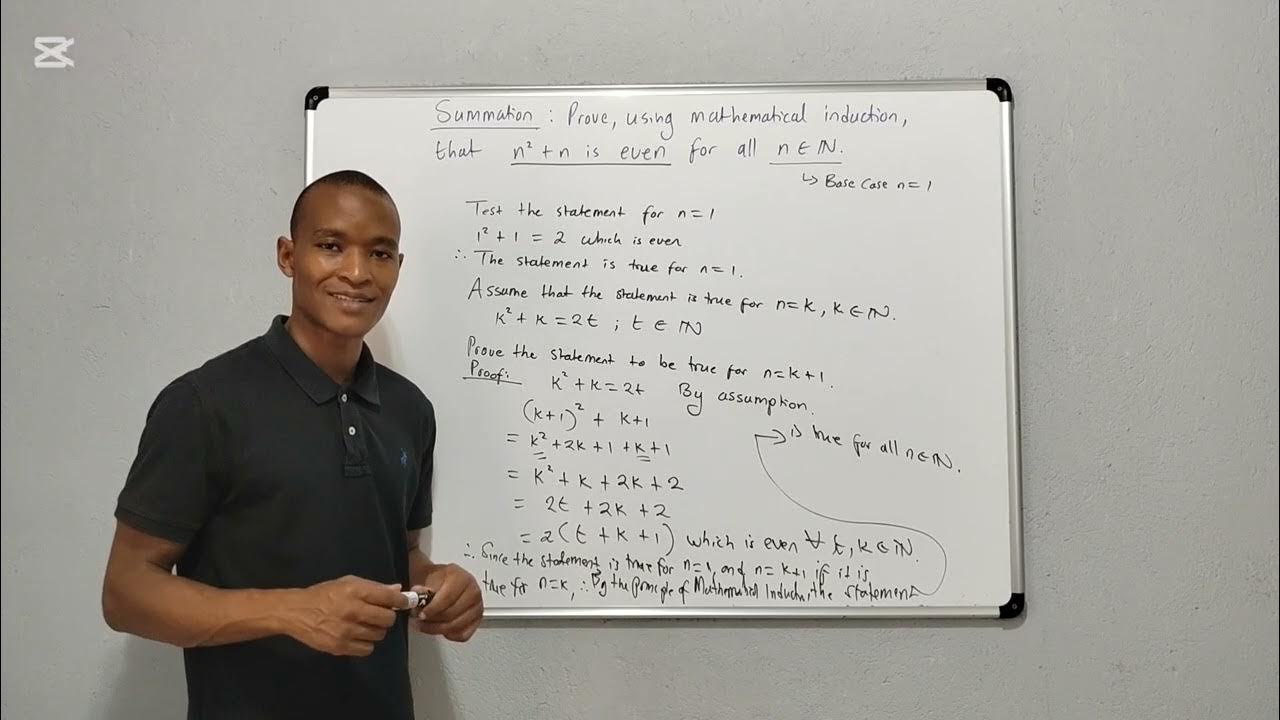 Summation : Prove, using mathematical induction,
that n² + n is even for all n ∈ ℕ.
↳ Base Case n = 1
Test the statement for n = 1
1² + 1 = 2 which is even
∴ The statement is true for n = 1.
Assume that the statement is true for n = k, k ∈ ℕ.
k² + k = 2t ; t ∈ ℕ
Prove the statement to be true for n = k + 1.
Proof: k² + k = 2t By assumption.
(k+1)² + k+1
= k² + 2k + 1 + k + 1
= k² + k + 2k + 2
= 2t + 2k + 2
= 2(t + k + 1) which is even ∀ t, k ∈ ℕ.
∴ Since the statement is true for n = 1, and n = k+1 if it is
true for n = k, ∴ By the Principle of Mathematical the statement
is true for all n ∈ ℕ.